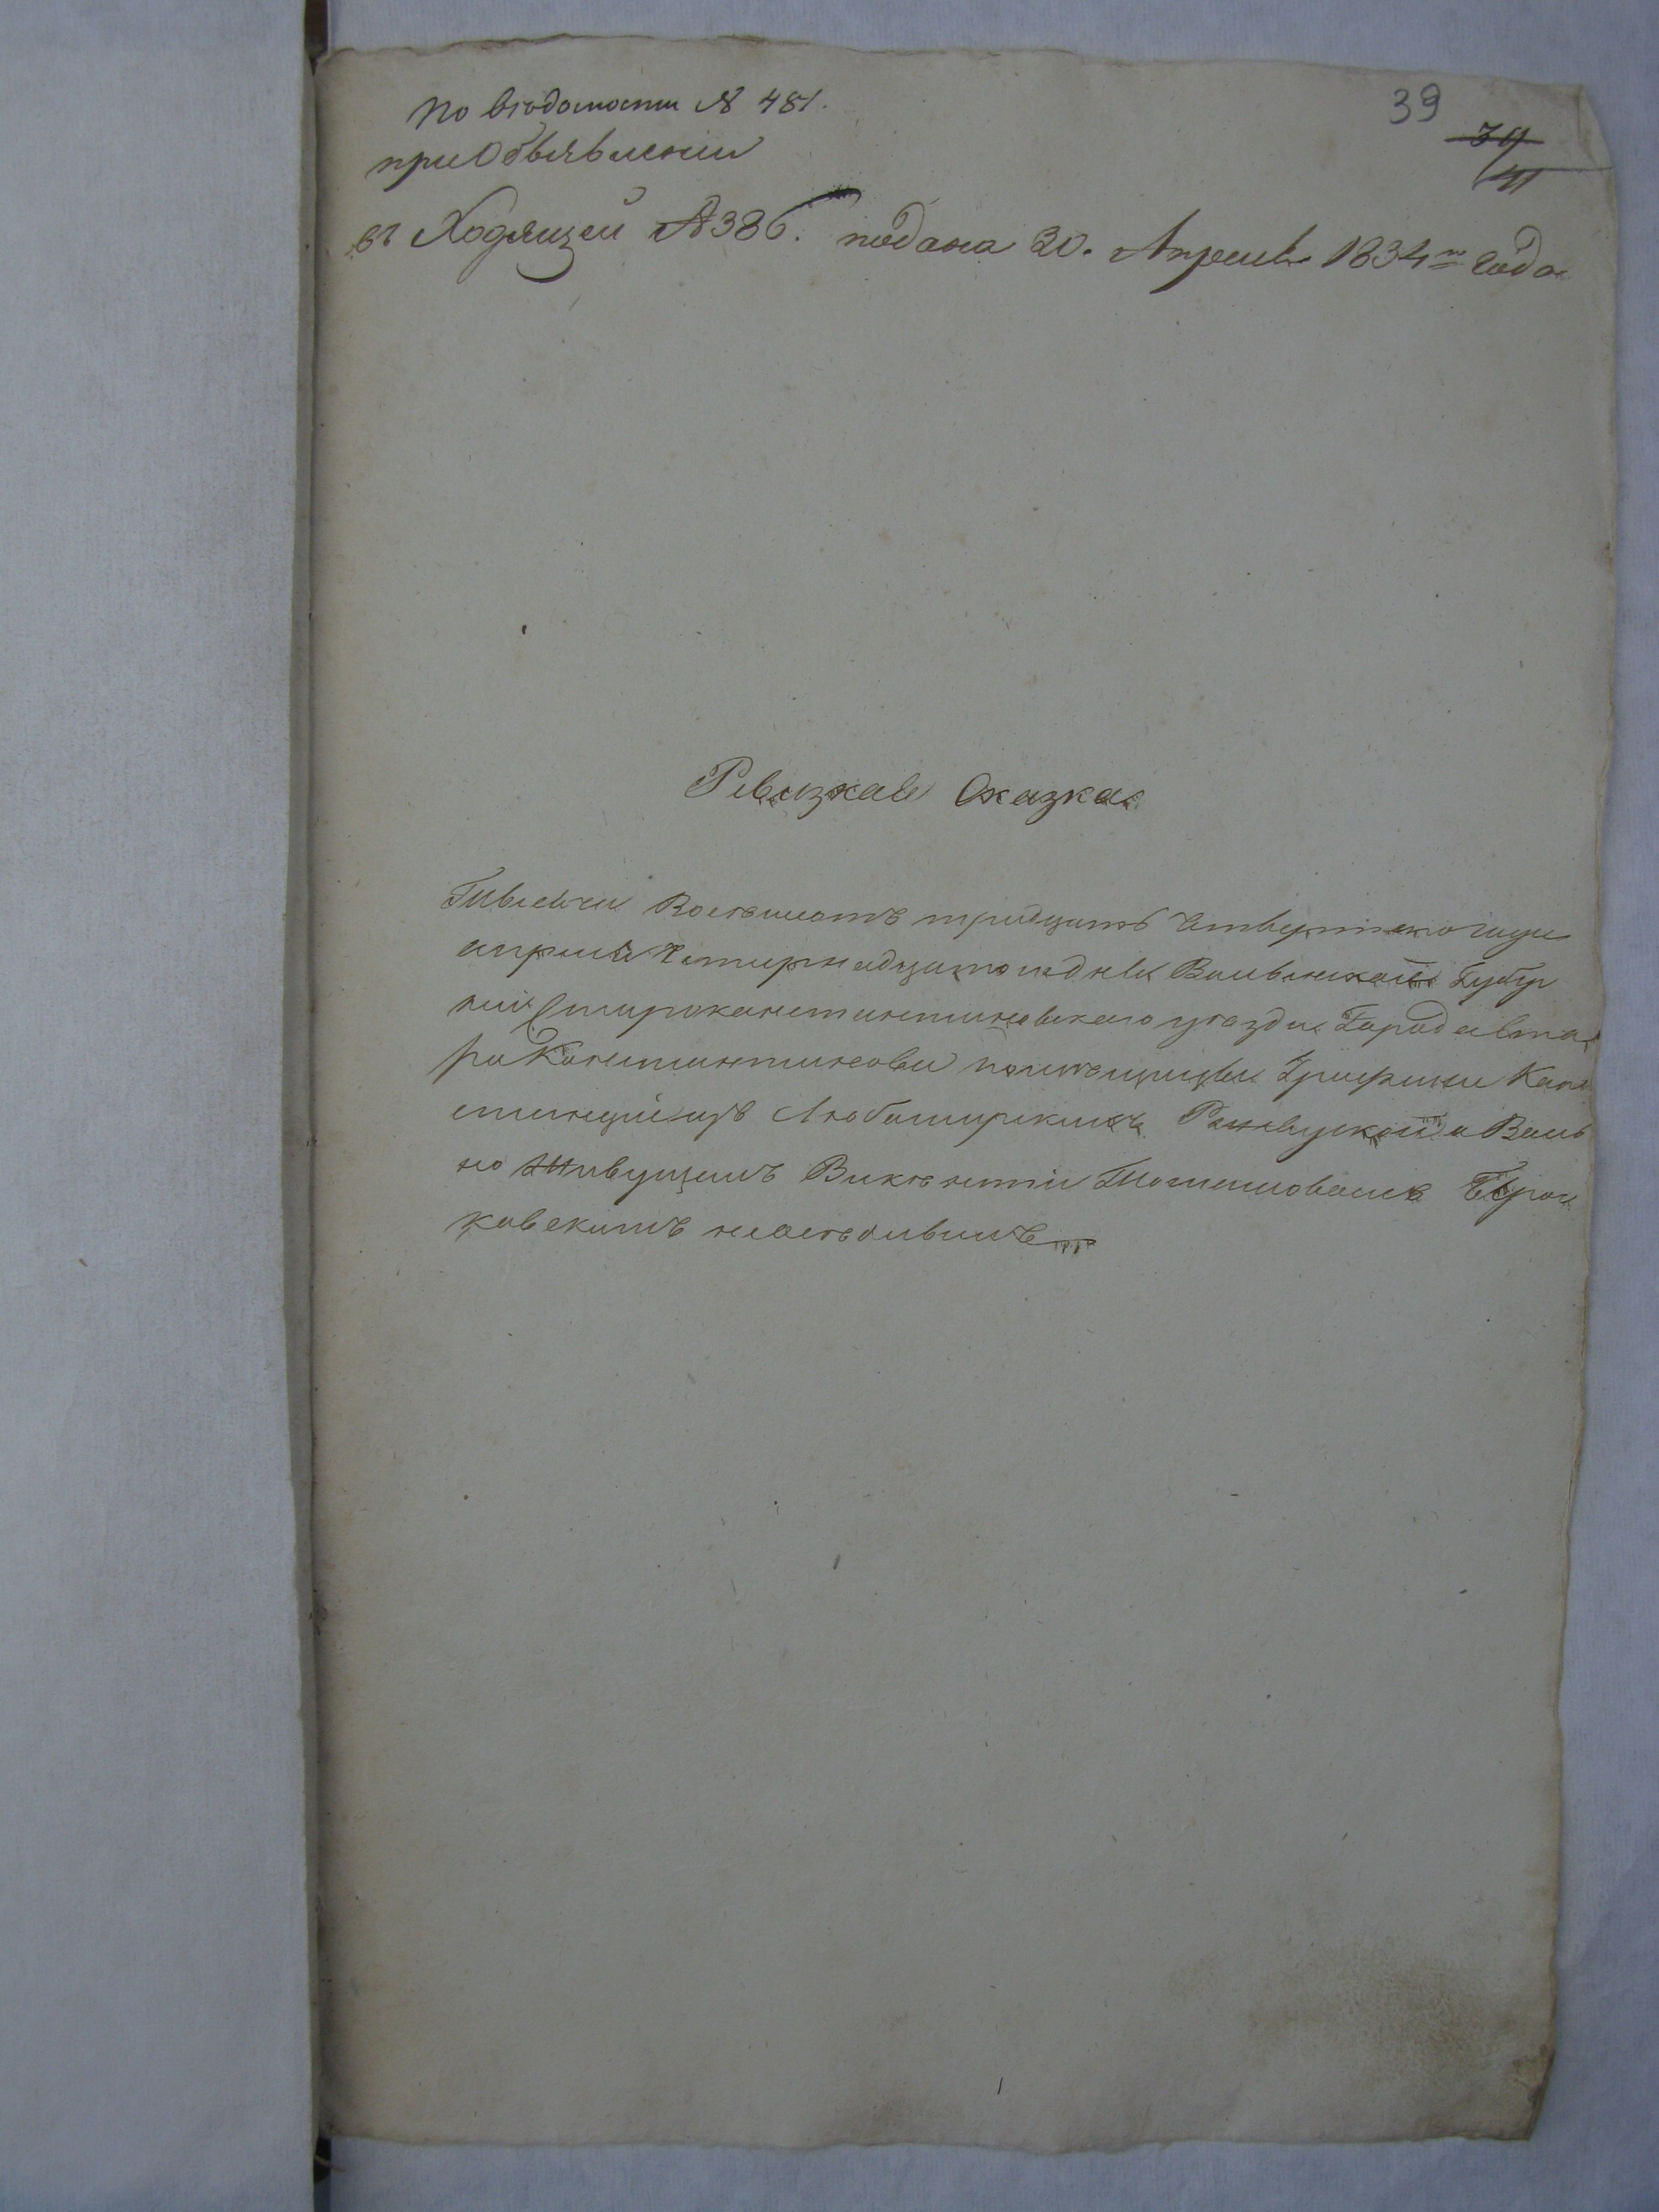 По ведомости № 481.
39
при Объявлении
въ Ходящей № 386. подана 30. Апреля 1834го года
Ревизкая Сказка
Тысяча Восемсотъ тридцать Четвертого года
апреля Четирнадцатого дня Волынской Губер
нии Староконстантиновского уезда Города Ста
ро Константинова помещици Графини Кон
станции изъ Любомирскихъ Ржевуской о Воль
но живущемъ Викентии
ковскимъ